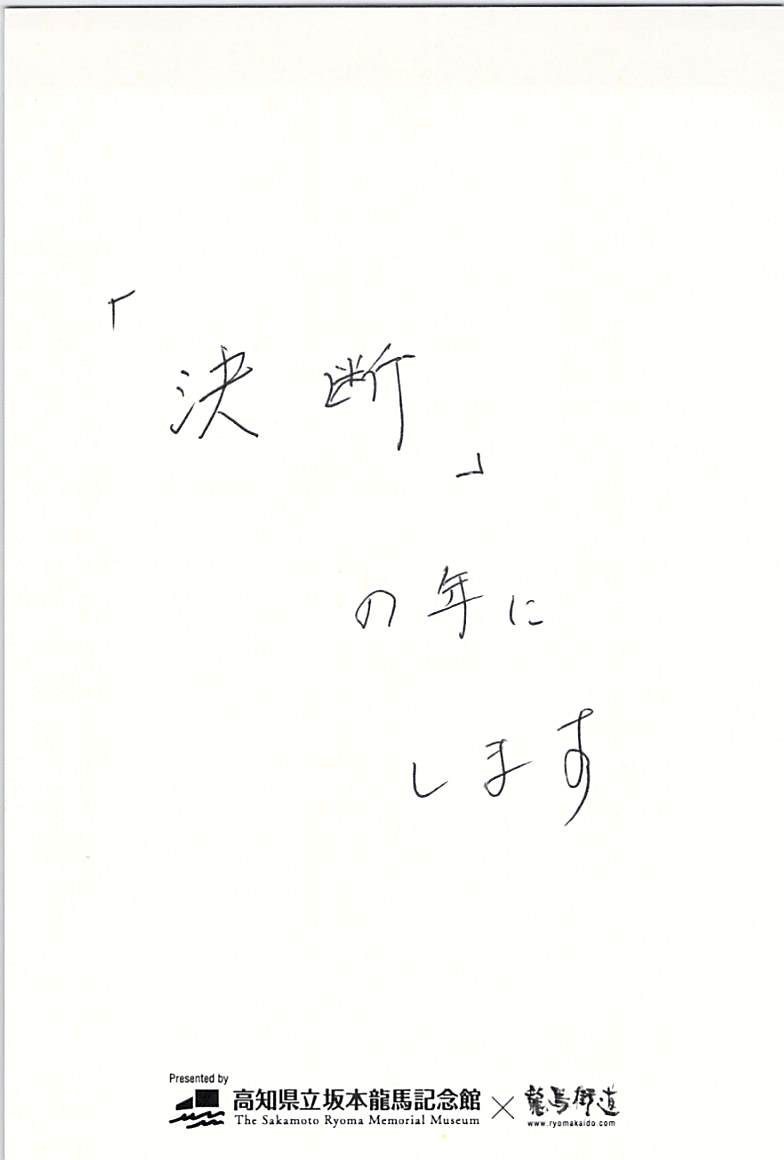 「決断」
の年に
します
Presented by
高知県立坂本龍馬記念館
The Sakamoto Ryoma Memorial Museum
×
龍馬街道
www.ryomakaido.com